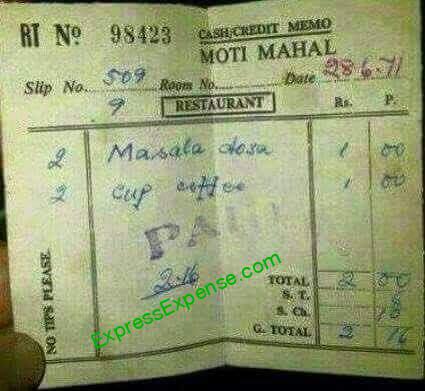 RT No. 98423 CASH/CREDIT MEMO
MOTI MAHAL
Slip No. 509 Room No. Date 28.6.71
9 RESTAURANT Rs. P.
2 Masala dosa 1 00
2 cup coffee 1 00
PAID
2.16
TOTAL 2 00
S. T.
S. Ch.
G. TOTAL 2 16
NO TIPS PLEASE.
ExpressExpense.com